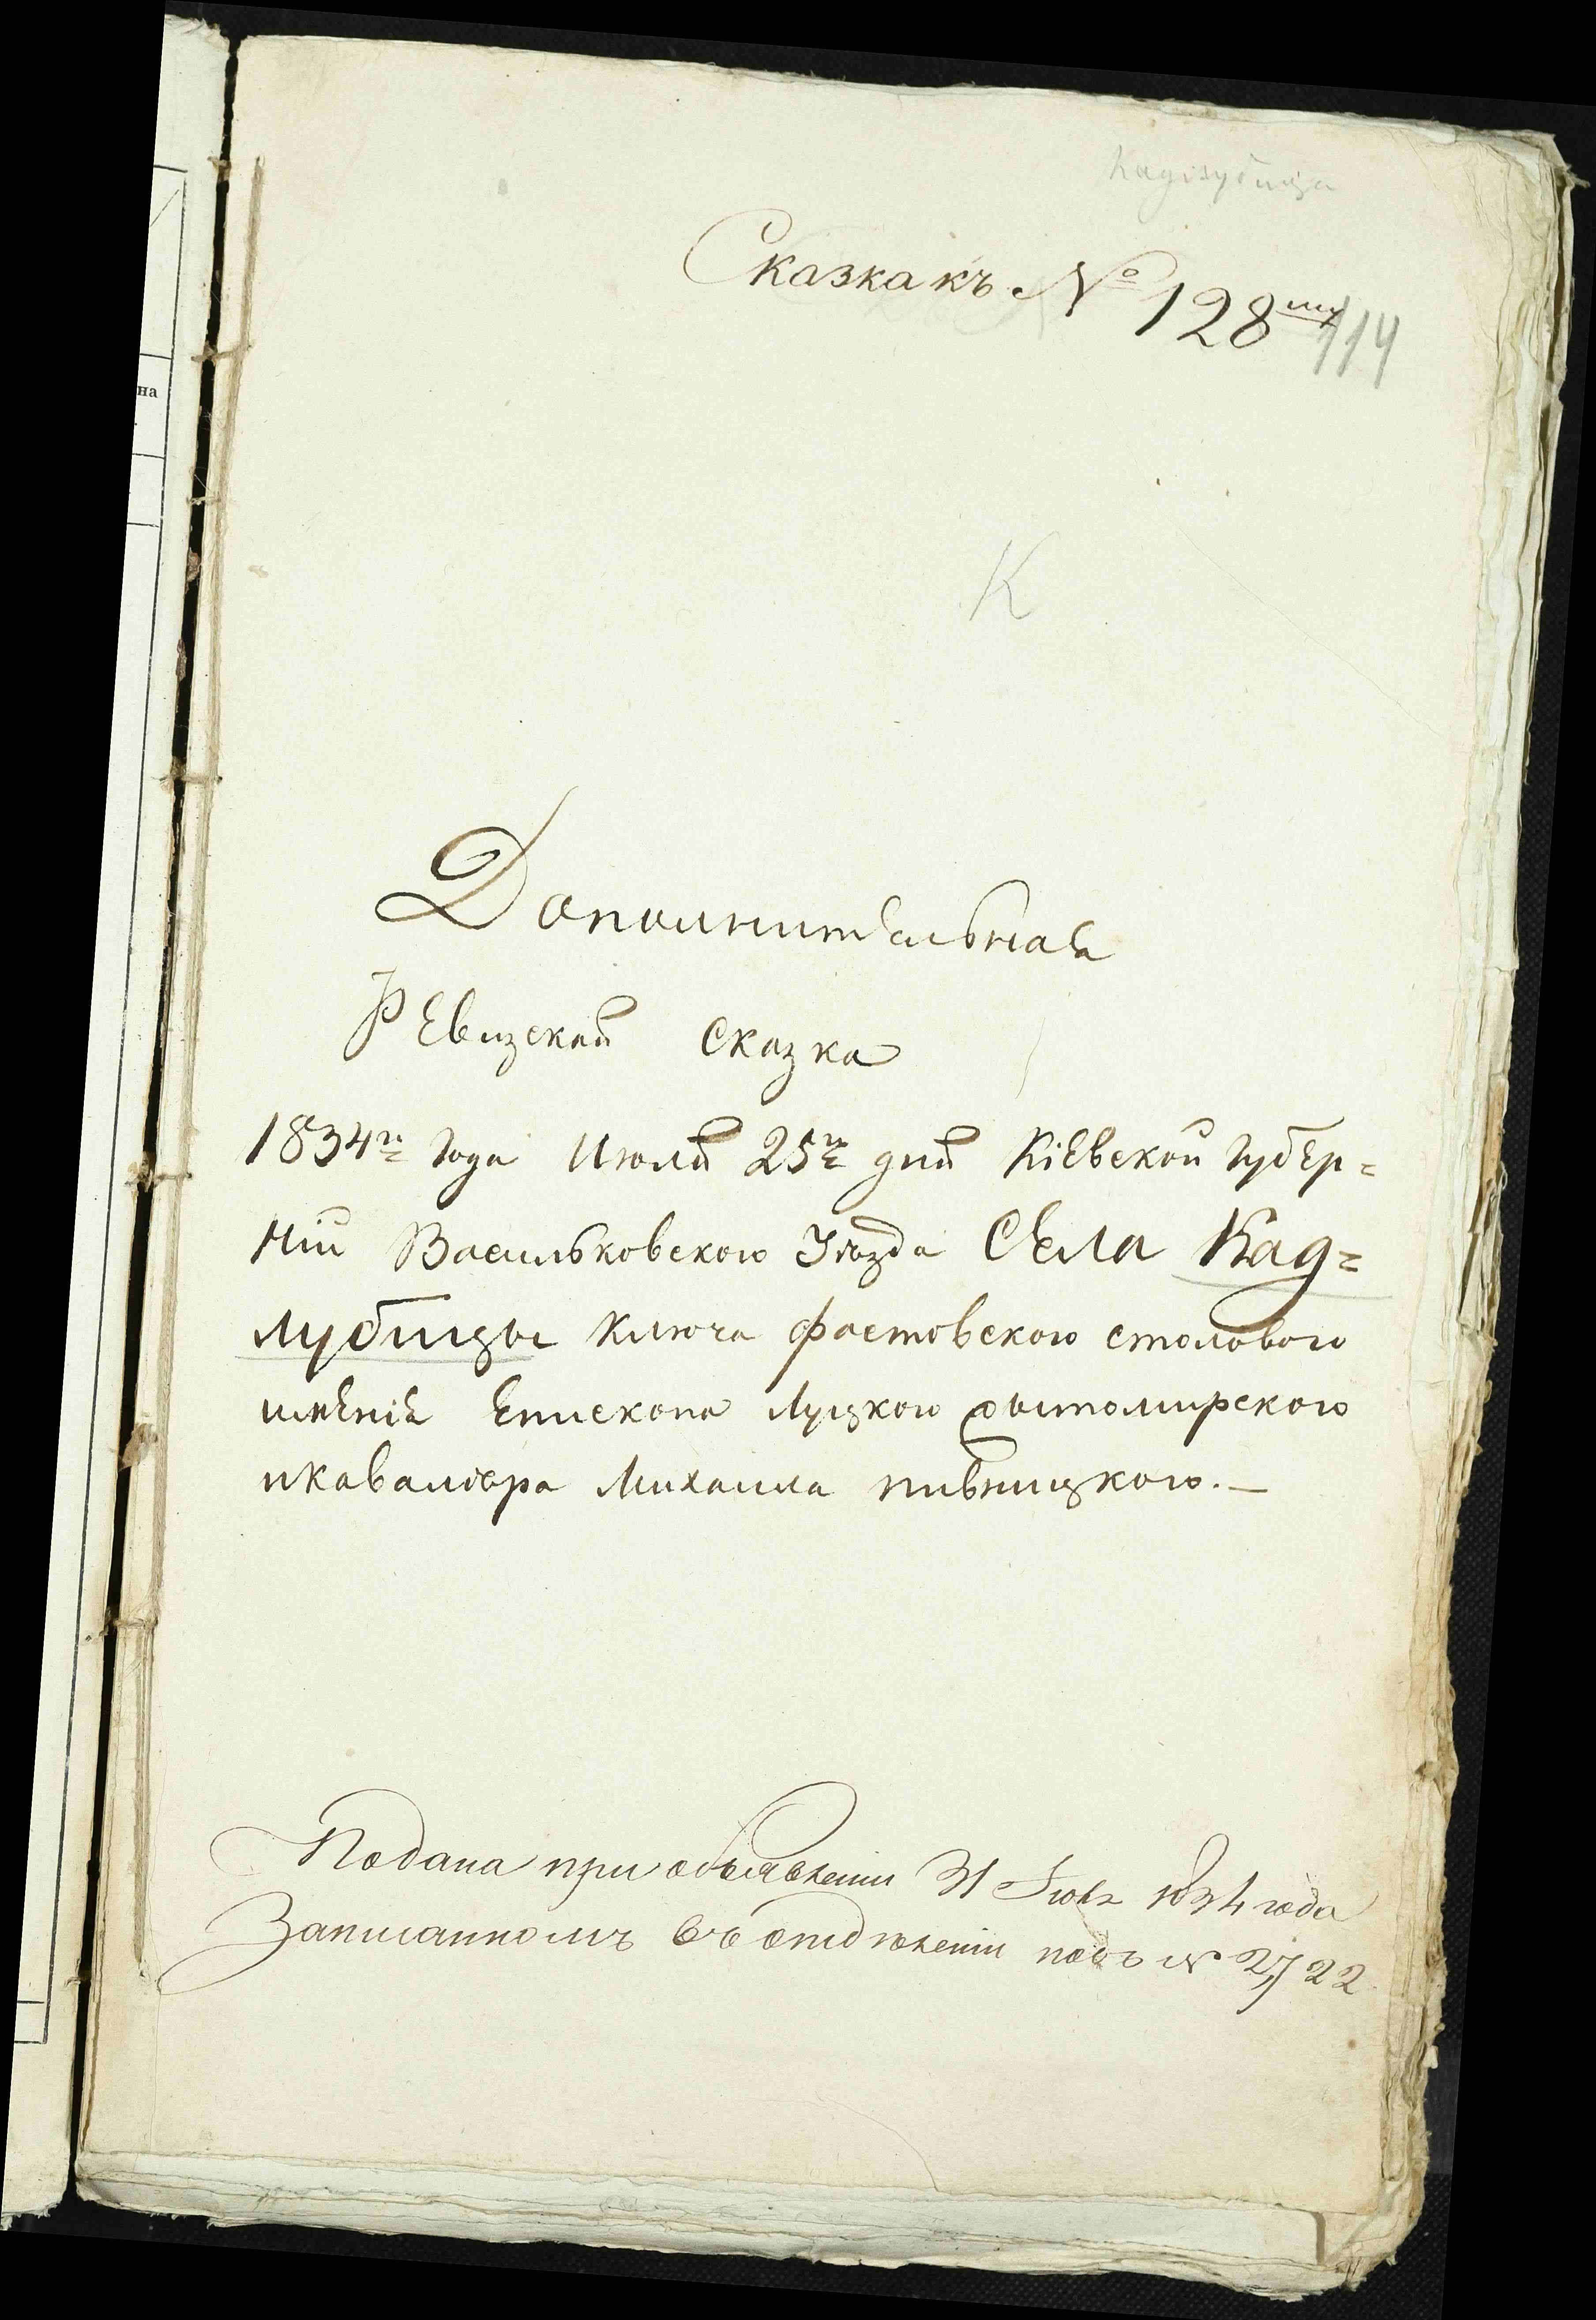 Кадлубица
Сказка къ № 128му
114
К
Дополнительная
Ревизская сказка
1834го года Июля 25го дня Кіевской губер=
ніи Васильковского Уѣзда Села Кад=
лубицы Ключа фастовского столового
имѣнія Епископа Луцкого житомирского
и кавалѣра Михаила пивницкого.—
Подана при объявленіи 31 Іюля 1834 года
Записанномъ въ отдѣленіи подъ № 2722
на